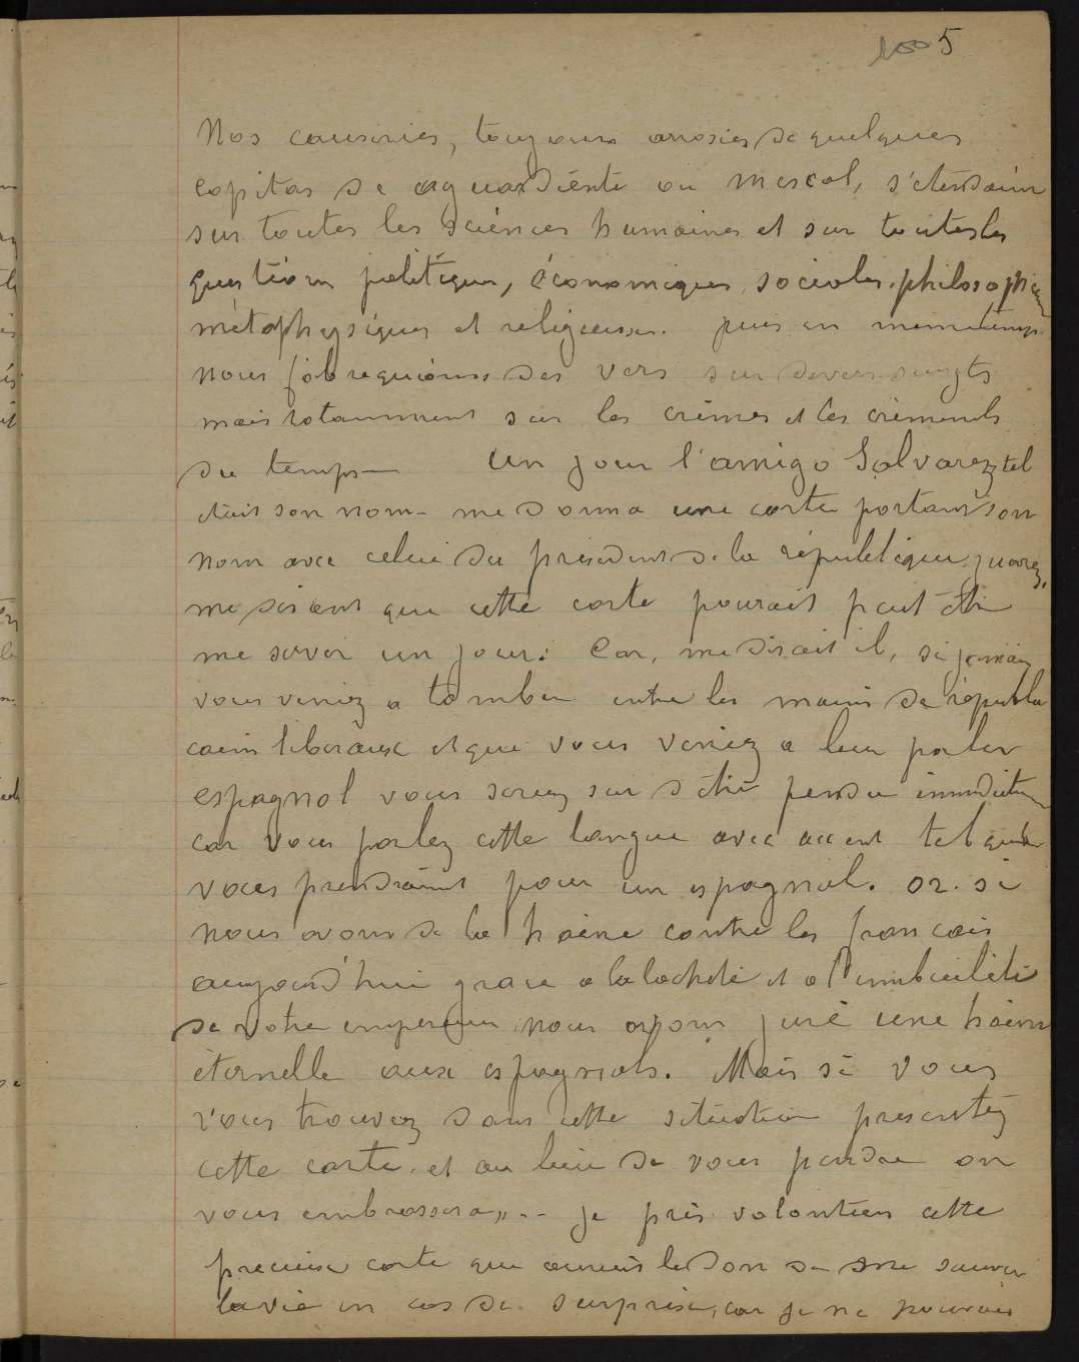 5
Nos causeries, toujours arrosées de quelques
copitas de aguardiente ou mescal, s'etendaient
sur toutes les sciences humaines et sur toutes les
questions politiques, économiques, sociales. philosophiques
métaphysiques et religieuses. puis en meme temps
nous fabriquions des vers sur divers sujets
mais notamment sur les crimes et les criminels
du temps— Un jour l'amigo Salvarez, tel
était son nom - me donna une carte portant son
nom avec celui du president de la république, juarez,
me disant que cette carte pourait peut être
me sover un jour: Car, me disait il, si jamais
vous veniez a tomber entre les mains de républi
cains liberaux et que vous veniez a leur parler
espagnol vous seriez sur d'être pendu immédiatem
car vous parlez cette langue avec accent tel qu'on
vous prendraient pour un espagnol. or. si
nous avons de la haine contre les francais
aujourd'hui grace a la lachete et a l'imbecilité
de votre empereur nous avons juré une haine
éternelle aux espagnols. Mais si vous
vous trouvez dans cette situation presentez
cette carte. et au lieu de vous pendre on
vous embrassera,,.. je pris volontiers cette
precieuse carte que aurait le don de me sauver
la vie en cas de surprise, car je ne pourrais